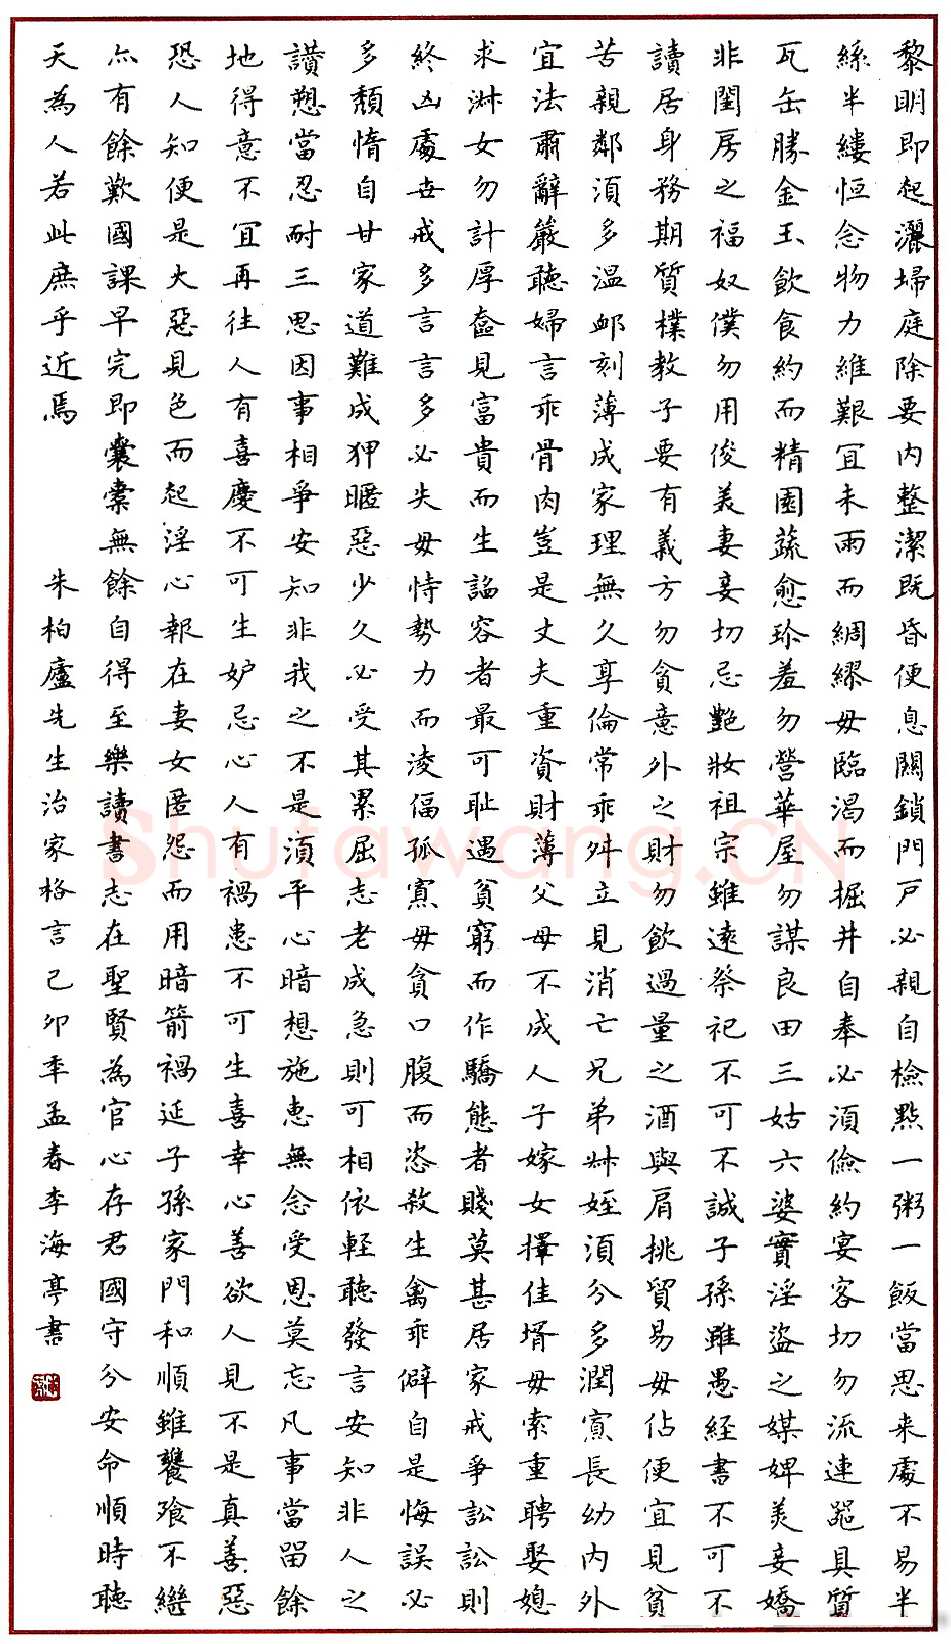 黎明即起灑埽庭除要内整潔既昏便息關鎖門戸必親自檢點一粥一飯當思来處不易半
絲半縷恒念物力維艱宜未雨而綢繆毋臨渴而掘井自奉必須儉約宴客切勿流連器具質
瓦缶勝金玉飲食約而精園蔬愈珍羞勿營華屋勿謀良田三姑六婆實淫盜之媒婢美妾嬌
非閨房之福奴僕勿用俊美妻妾切忌艷妝祖宗雖遠祭祀不可不誠子孫雖愚經書不可不
讀居身務期質樸教子要有義方勿貪意外之財勿飲過量之酒與肩挑貿易毋佔便宜見貧
苦親鄰須多温卹刻薄成家理無久享倫常乖舛立見消亡兄弟姊姪須分多潤寡長幼内外
宜法肅辭嚴聽婦言乖骨肉豈是丈夫重資財薄父母不成人子嫁女擇佳壻毋索重聘娶媳
求淋女勿計厚奩見富貴而生諂容者最可恥遇貧窮而作驕態者賤莫甚居家戒爭訟訟則
終凶處世戒多言言多必失毋恃勢力而淩偪孤寡毋貪口腹而恣殺生禽乖僻自是悔誤必
多頹惰自甘家道難成狎暱惡少久必受其累屈志老成急則可相依輕聽發言安知非人之
讃愬當忍耐三思因事相爭安知非我之不是須平心暗想施惠無念受恩莫忘凡事當留餘
地得意不宜再往人有喜慶不可生妒忌心人有禍患不可生喜幸心善欲人見不是真善惡
恐人知便是大惡見色而起淫心報在妻女匿怨而用暗箭禍延子孫家門和順雖饔飧不繼
亦有餘歡國課早完即囊橐無餘自得至樂讀書志在聖賢為官心存君國守分安命順時聽
天為人若此庶乎近焉
朱柏廬先生治家格言己卯年孟春李海亭書
ShufaWang.CN